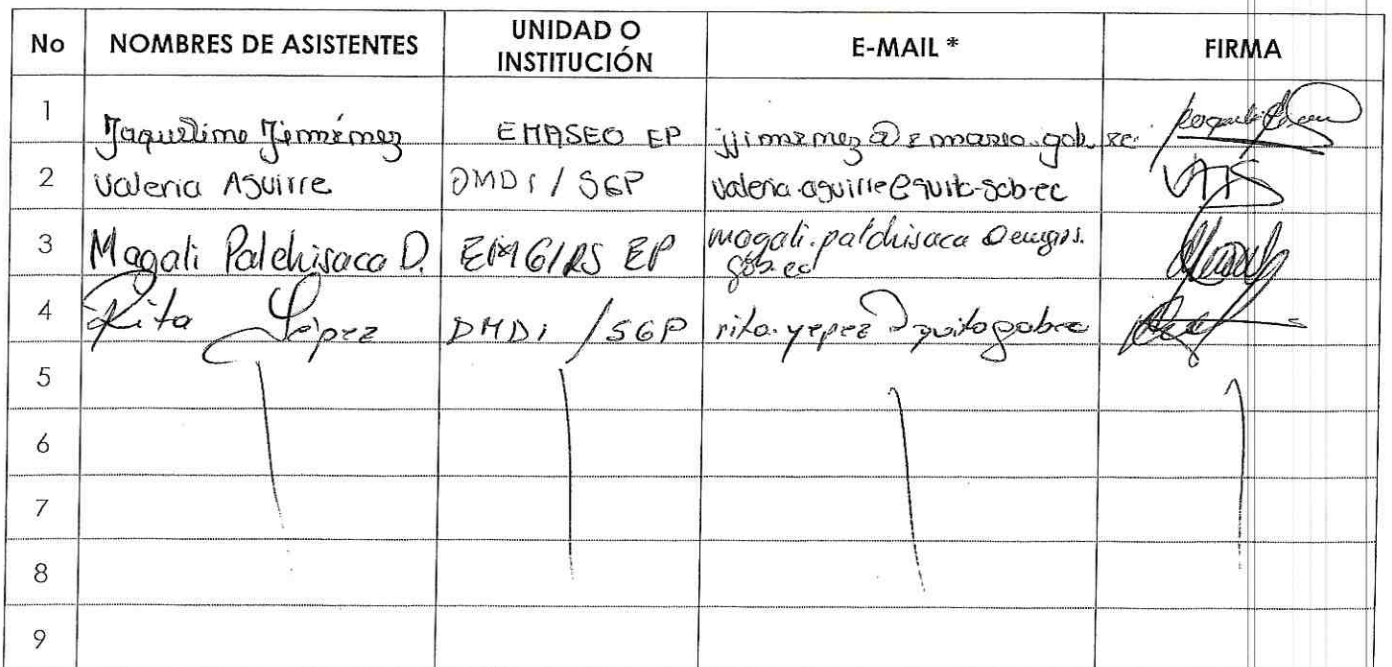 No NOMBRES DE ASISTENTES UNIDAD O INSTITUCIÓN E-MAIL * FIRMA
1 Jaqueline Jiménez EMASEO EP jjimenez@emaseo.gob.ec
2 Valeria Aguirre DMDI / SGP valeria.aguirre@quito.gob.ec
3 Magali Palchisaca D. EMGIRS EP magali.palchisaca@emgirs.
gob.ec
4 Rita Yépez DMDI / SGP rita.yepez@quito.gob.ec
5
6
7
8
9